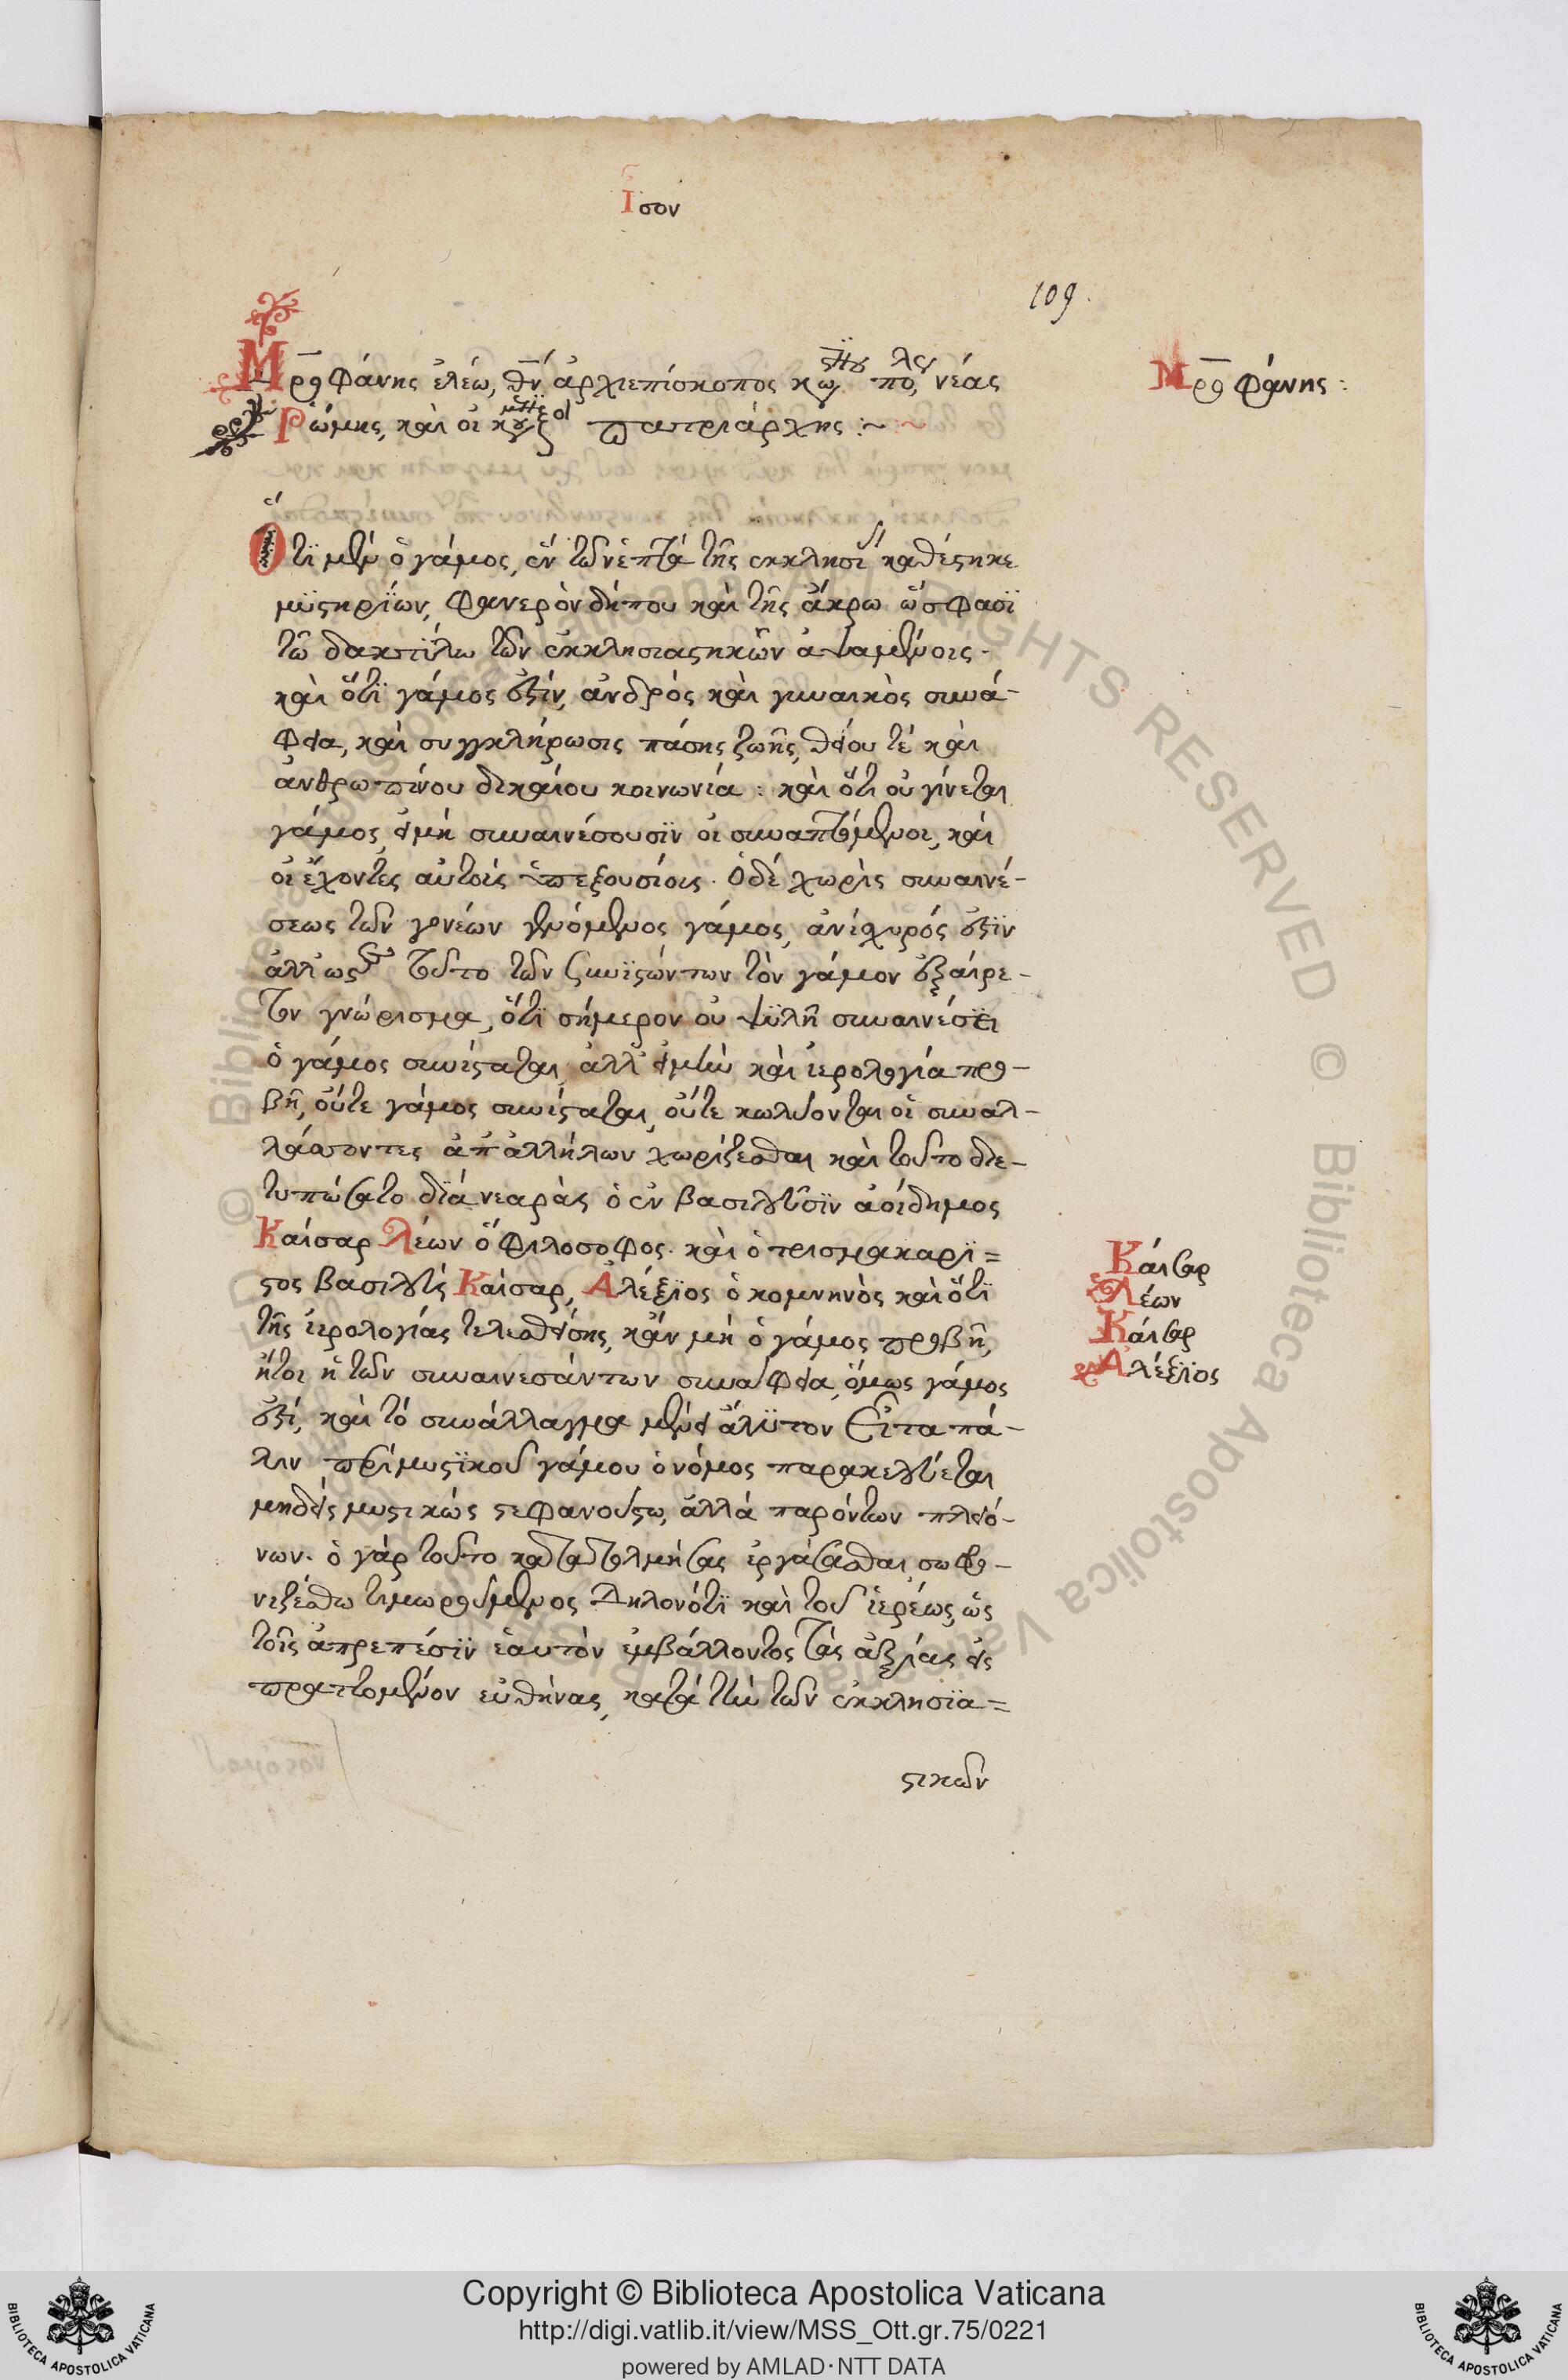 Ἴσον
109.
Μητροφάνης ἐλέω θῦ ἀρχιεπίσκοπος κωνσταντινουπόλεως νέας
Μητροφάνης:
Ῥώμης, καὶ οἰκουμενικὸς πατριάρχης :~
Ὅτϊ μὲν ὁ γάμος, ἓν τῶν ἑπτὰ τῆς ἐκκλησίας καθέστηκε
μϋστηρΐων, φανερὸν δήπου καὶ τῆς ἄκρω ὥς φασϊ
τῶ δακτΰλω τῶν ἐκκλησιαστηκῶν ἁψαμένοις.
καὶ ὅτϊ γάμος ἐστὶν, ἀνδρὸς καὶ γυναικὸς συνά-
φεια, καὶ συγγκλήρωσις πάσης ζωῆς, θείου τὲ καὶ
ἀνθρωπίνου δικαίου κοινωνία : καὶ ὅτι οὐ γίνεται
γάμος, εἰμὴ συναινέσουσϊν οἱ συναπτόμενοι, καὶ
οἱ ἔχοντες αὐτοὶς ὑπεξουσίοις. ὁ δὲ χωρὶς συναινέ-
σεως τῶν γονέων γενόμενος γάμος, ἀνίσχυρός ἐστϊν
ἀλλ' ὡς τοῦτο τῶν ζυνϊστώντων τὸν γάμον ἐξαίρε-
τον γνώρισμα, ὅτϊ σήμερον οὐ ψϋλῆ συναινέσει
ὁ γάμος συνίσταται, ἀλλ' εἰμὴν καὶ ἱερολογία προ-
βῆ, οὔτε γάμος συνίσταται, οὔτε κωλύονται οἱ συναλ-
λάττοντες ἀπ' ἀλλήλων χωρίζεσθαι καὶ τοῦτο διε-
τυπώσατο δϊὰ νεαρὰς ὁ ἐν βασιλεῦσϊν ἀοίδημος
Καίσαρ Λέων ὁ φιλοσοφος. καὶ ὁ τρισμακαρϊ=
στος βασιλεὺς Καίσαρ, Ἀλέξϊος ὁ κομνηνὸς καὶ ὅτϊ
τῆς ἱερολογίας τελεσθείσης, κἂν μὴ ὁ γάμος προβῆ,
ἤτοι ἡ τῶν συναινεσάντων συνάφεια, ὅμως γάμος
ἐστὶ, καὶ τὸ συνάλλαγμα μένει ἄλϋτον Εἶτα πά-
λιν περὶ μυστϊκοῦ γάμου ὁ νόμος παρακελεύεται
μηδεὶς μυστικώς στεφανούστω, ἀλλὰ παρόντων πλειό-
νων. ὁ γὰρ τοῦτο κατατολμήσας ἐργάσασθαι, σωφρο-
νιζέσθω τιμωρούμενος Δηλονότϊ καὶ τοῦ ἱερέως, ὡς
τοῖς ἀπρεπέσϊν ἑαυτὸν ἐμβάλλοντος τὰς ἀξίας εἰς
πραττομένον εὐθήνας, κατὰ τὴν τῶν ἐκκλησϊα=
στικῶν
Κάισαρ
Λέων
Κάισαρ
Ἀλέξϊος
Copyright © Biblioteca Apostolica Vaticana
http://digi.vatlib.it/view/MSS_Ott.gr.75/0221
powered by AMLAD·NTT DATA